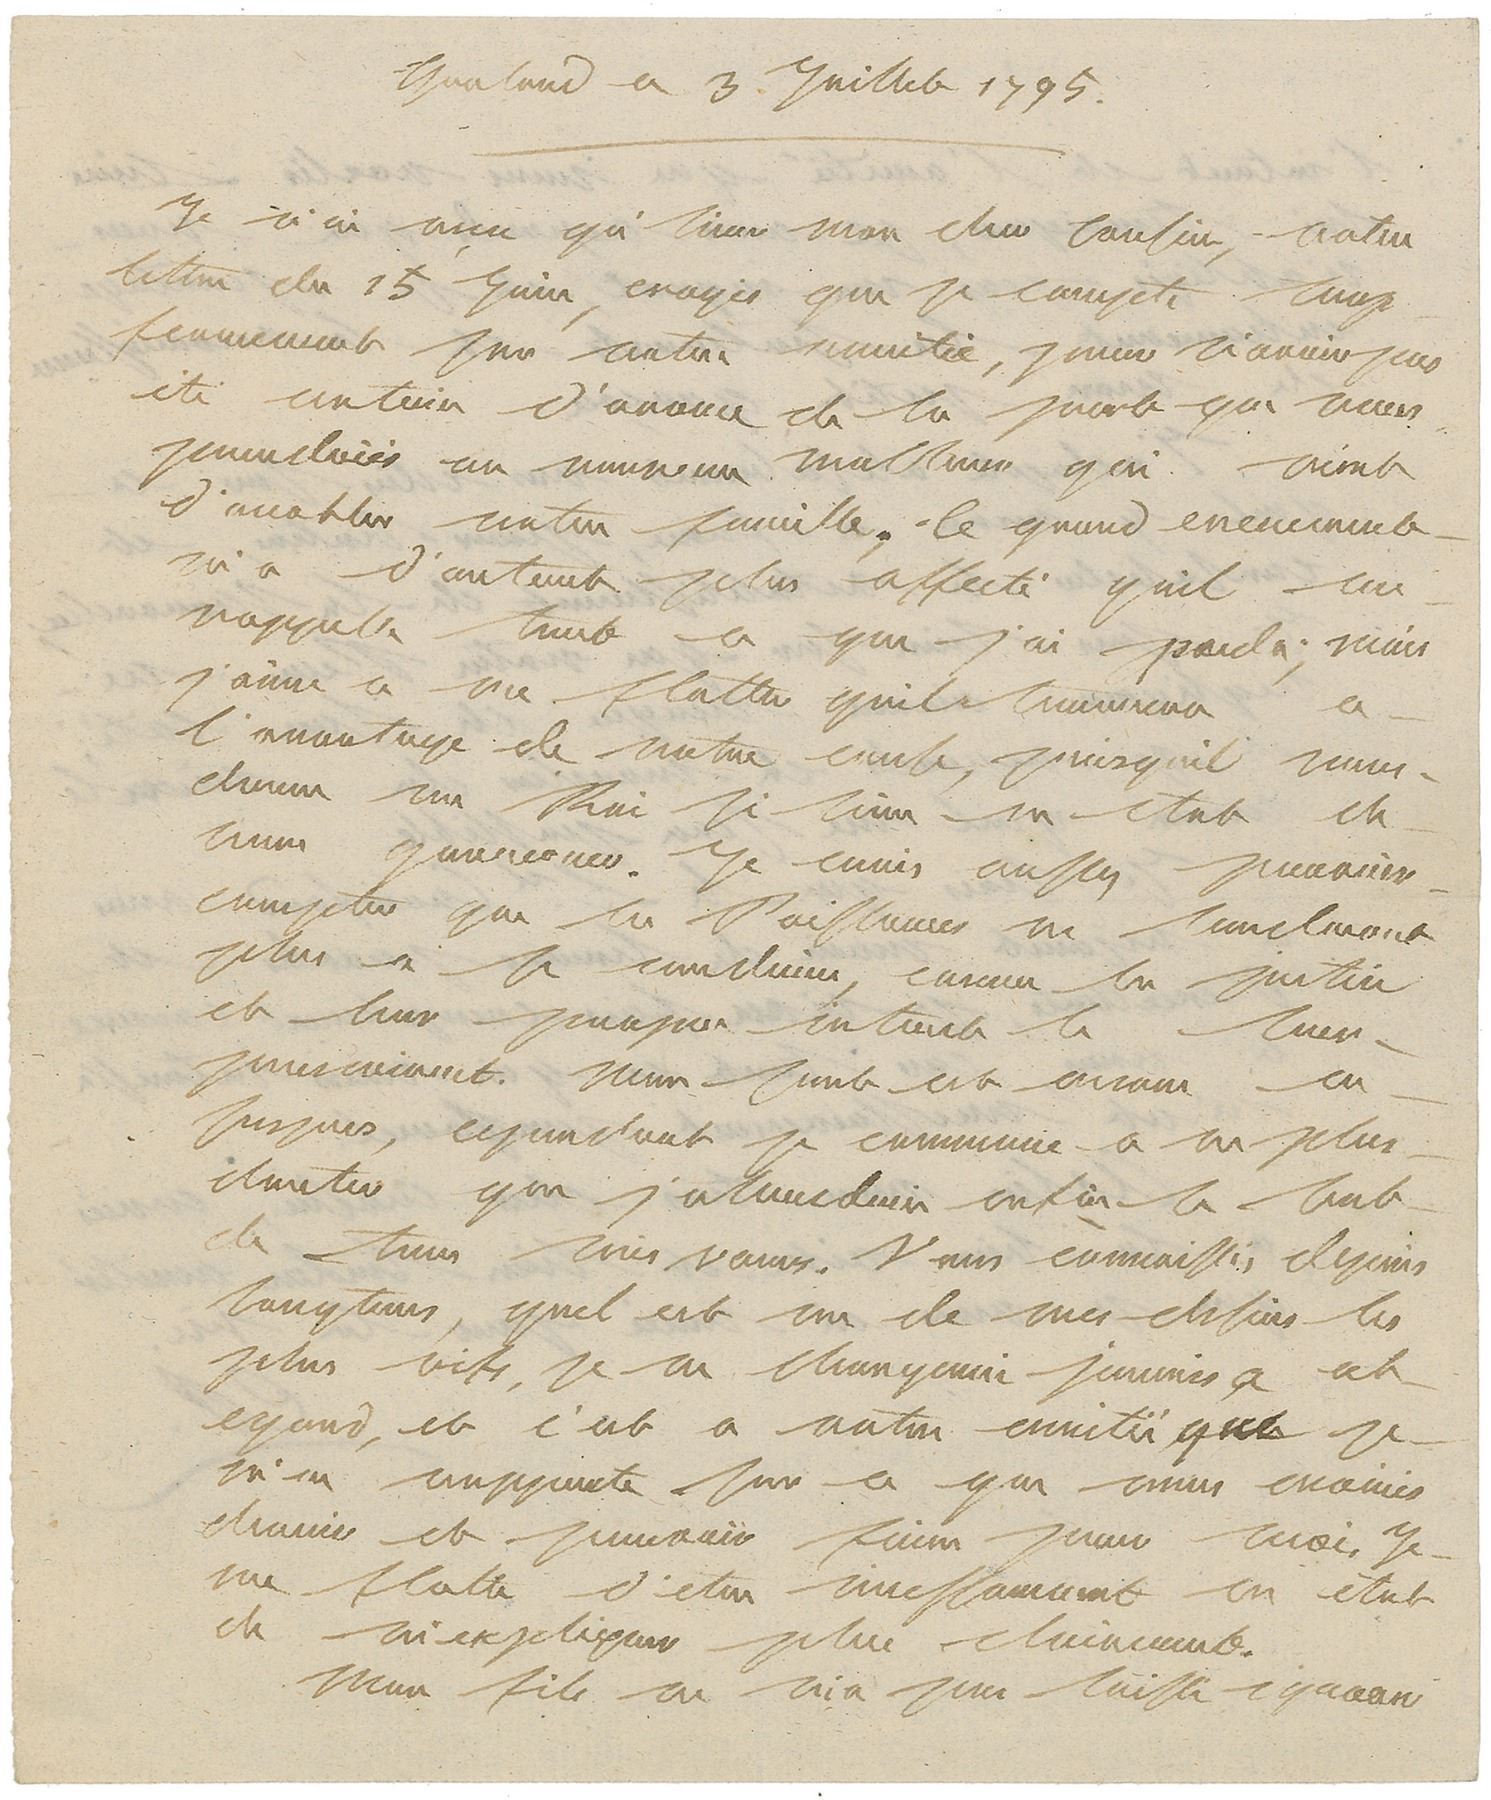 ce 3 Juillet 1795.
Je n'ai reçu qu'hier mon cher Cousin, votre
lettre du 15 Juin, croyés que je compte trop
fermement sur votre amitié, pour n'avoir pas
été certain d'avance de la part que vous
prendriés au nouveau malheur qui vient
d'accabler notre famille. Ce grand evenement
m'a d'autant plus affecté qu'il me
rappelle tout ce que j'ai perdu; mais
j'aime a me flatter qu'il tournera a
l'avantage de notre cause, puisqu'il nous
donne un Roi si bien en etat de
nous gouverner. Je crois aussy pouvoir
compter que les Puissances ne tarderont
plus a se conduire, comme la justice
et leur propre interest le leur
prescrivent. Mon sort est encore en
suspens, cependant je commence a ne plus
douter que j'obtiendrai enfin le but
de tous mes vœux. Vous connoissés depuis
longtems, quel est un de mes desirs les
plus vifs, je ne changerai jamais a cet
egard, et c'est a votre amitié que je
m'en rapporte sur ce que vous croirés
devoir et pouvoir faire pour moi. Je
me flatte d'etre incessament en état
de m'expliquer plus clairement.
Mon fils ne m'a pas laissé ignorer